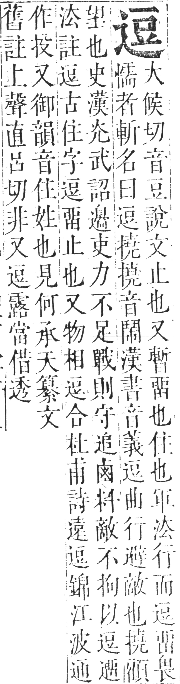 逗大候切音豆說文止也又暫畱也住也軍法行而逗畱畏
懦者斬名曰逗撓撓音鬧漢書音義逗曲行避敵也撓顧
望也史漢光武詔邊吏力不足戰則守追鹵料敵不拘以逗遛
法註逗古住字逗畱止也又物相逗合杜甫詩遠逗錦江波通
作投又御韻音住姓也見何承天纂文
舊註上聲直呂切非又逗露當借透